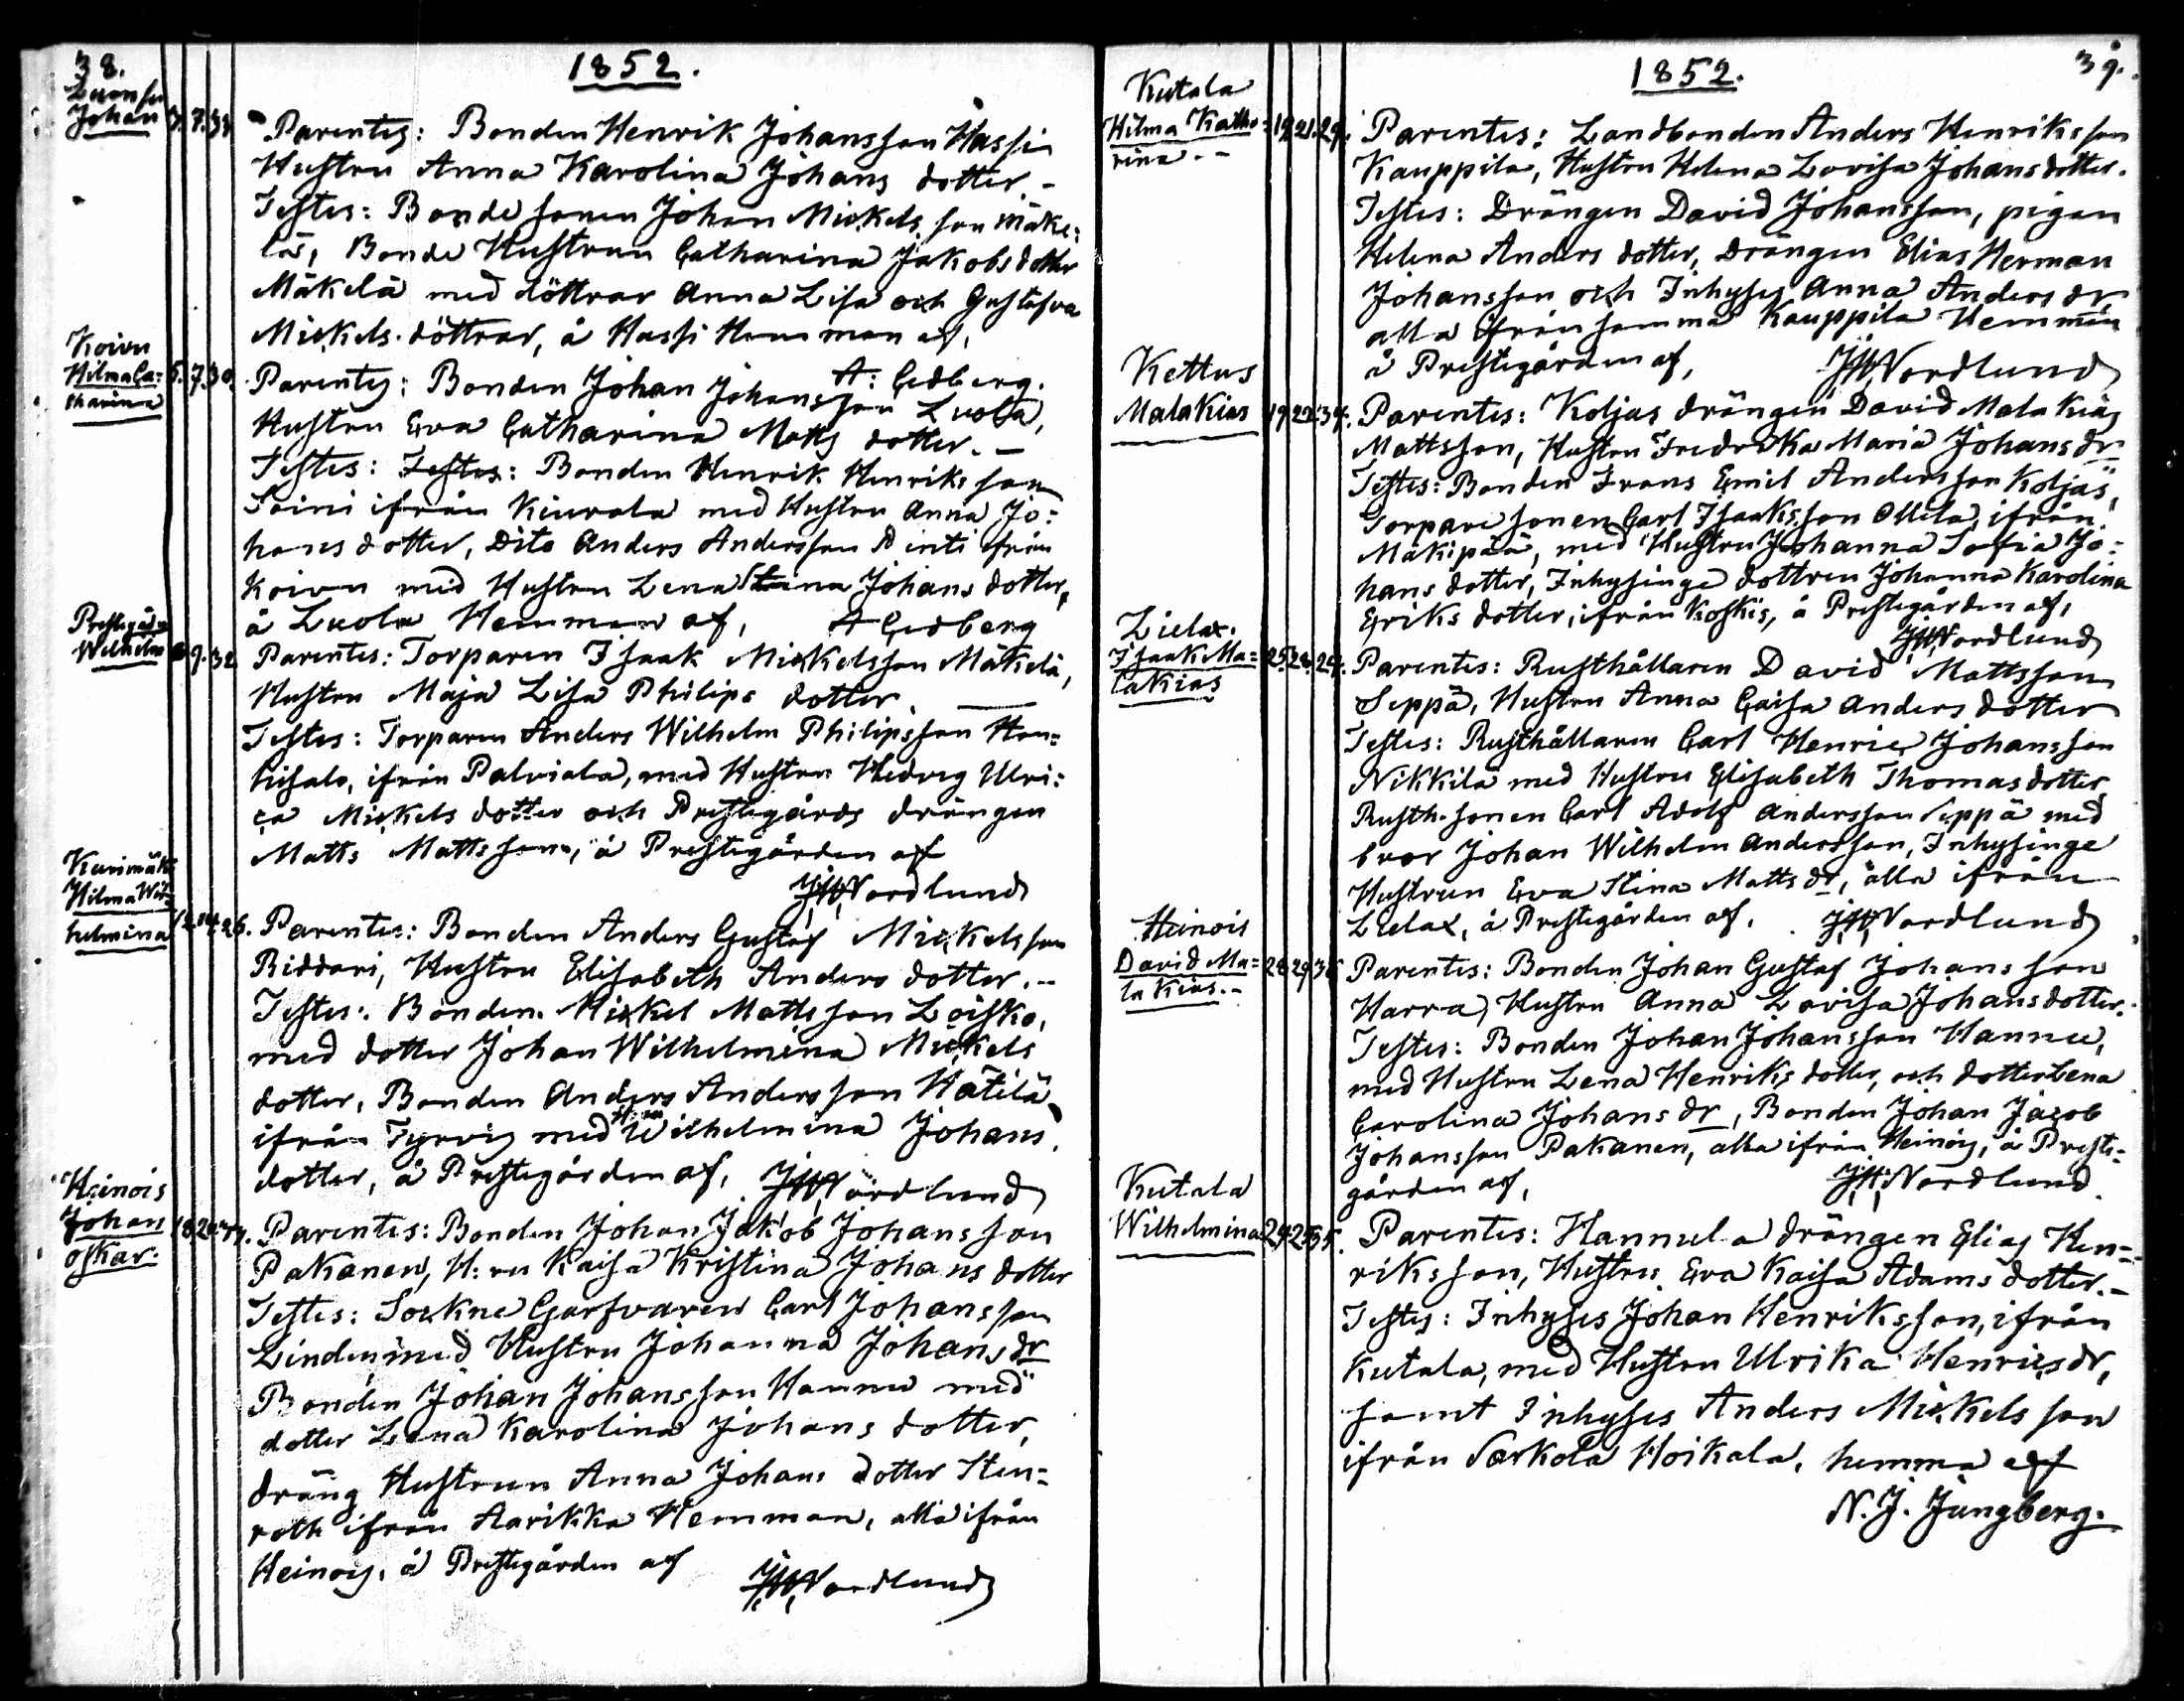 38.
1852.
Johan 3. 7.
Parentes: Bonden Henrik Johansson Hassi
Hustru Anna Karolina Johans dotter.-
Testes: Bonde sonen Johan Mickels son Mäke=
lä, Bonde Hustrun Catharina Jakobs dotter
Mäkelä med döttrar Anna Lisa och Gustafva
Mickels döttrar, å Hassi Hemman af,
A: Cedberg.
Koivu
Hilma Ca=
tharina 5. 7. 30.
Parentes: Bonden Johan Johansson Luola,
Hustru Eva Catharina Matts dotter.-
Testes: Testes: Bonden Henrik Henriks son
Soini ifrån Kiurala med Hustru Anna Jo=
hans dotter, Dito Anders Andersson Pinti ifrån
Koivu med Hustru Lena Stina Johans dotter,
å Luola Hemman af, A Cedberg
Prestegården
Wilhelm 9. 32.
Parentes: Torparen Isaak Mickelsson Mäkelä,
Hustru Maja Lisa Philips dotter.
Testes: Torparen Anders Wilhelm Philipsson Hon=
kisalo, ifrån Palviala, med Hustru Hedvig Ulri=
ca Mickels dotter och Prestegårds drängen
Matts Matts son, å Prestegården af
JWNordlund
Hilma Wil=
helmina 12. 14. 26.
Parentes: Bonden Anders Gustaf Mickelsson
Riddari, Hustru Elisabeth Anders dotter.-
Testes: Bonden Mickel Matts son Loisko,
med dotter Johan Wilhelmina Mickels
dotter, Bonden Anders Andersson Hätilä
ifrån Tyrvis med H:ru Wilhelmina Johans
dotter, å Prestegården af, JWNordlund
Heinois
Johan
Oskar. 18. 20.
Parentes: Bonden Johan Jakob Johansson
Pakanen, H:ru Kaisa Kristina Johans dotter
Testes: Sockne Garfvaren Carl Johansson
Linden, med Hustru Johanna Johans dr
Bonden Johan Johansson Hannu med
dotter Lena Karolina Johans dotter,
dräng Hustrun Anna Johans dotter Sten=
roth ifrån Aarikka Hemman, alla ifrån
Heinois, å Prestegården af JWNordlund
39.
1852.
Kutala
Hilma Katha=
rina.- 19. 21. 29.
Parentes: Landbonden Anders Henriksson
Kauppila, Hustru Helena Lovisa Johansdotter.
Testes: Drängen David Johansson, pigan
Helena Anders dotter, Drängen Elias Herman
Johansson och Inhyses Anna Anders dr
alla ifrån samma Kauppila Hemman
å Prestegården af, JWNordlund
Kettus
Malakias 19. 22. 34.
Parentes: Koljas drängen David Malakias
Mattsson, Hustru Fredrika Maria Johans dr
Testes: Bonden Frans Emil Andersson Koljas,
Torpare sonen Carl Isaaksson Ollela, ifrån
Mäkipää, med Hustru Johanna Sofia Jo=
hans dotter, Inhysinge dottren Johanna Karolina
Eriks dotter, ifrån Koskis, å Prestegården af,
JWNordlund
Lielax.
Isaak Ma=
lakias 25. 28. 29.
Parentes: Rusthållaren David Mattsson
Seppä, Hustru Anna Caisa Anders dotter
Testes: Rusthållaren Carl Henric Johansson
Nikkilä med Hustru Elisabeth Thomas dotter,
Rusth. sonen Carl Adolf Andersson Seppä med
bror Johan Wilhelm Andersson, Inhysinge
Hustrun Eva Stina Matts dr, alla ifrån
Lielax, å Prestegården af. JWNordlund
Heinois
David Ma=
lakias.- 28. 29.
Parentes: Bonden Johan Gustaf Johansson
Harra, Hustru Anna Lovisa Johansdotter.
Testes: Bonden Johan Johansson Hannu,
med Hustru Lena Henriks dotter, och dotter Lena
Carolina Johans dr, Bonden Johan Jacob
Johansson Pakanen, alla ifrån Heinois, å Preste=
gården af, JWNordlund.
Kutala
Wilhelmina 24. 25. 35.
Parentes: Hannula drängen Elias Hen=
riksson, Hustru Eva Kaisa Adams dotter.-
Testes: Inhyses Johan Henriksson, ifrån
Kutala, med Hustru Ulrika Henricsdr,
samt Inhyses Anders Mickels son
ifrån Sarkola Hoikala, hemma af
N. J. Jungberg.